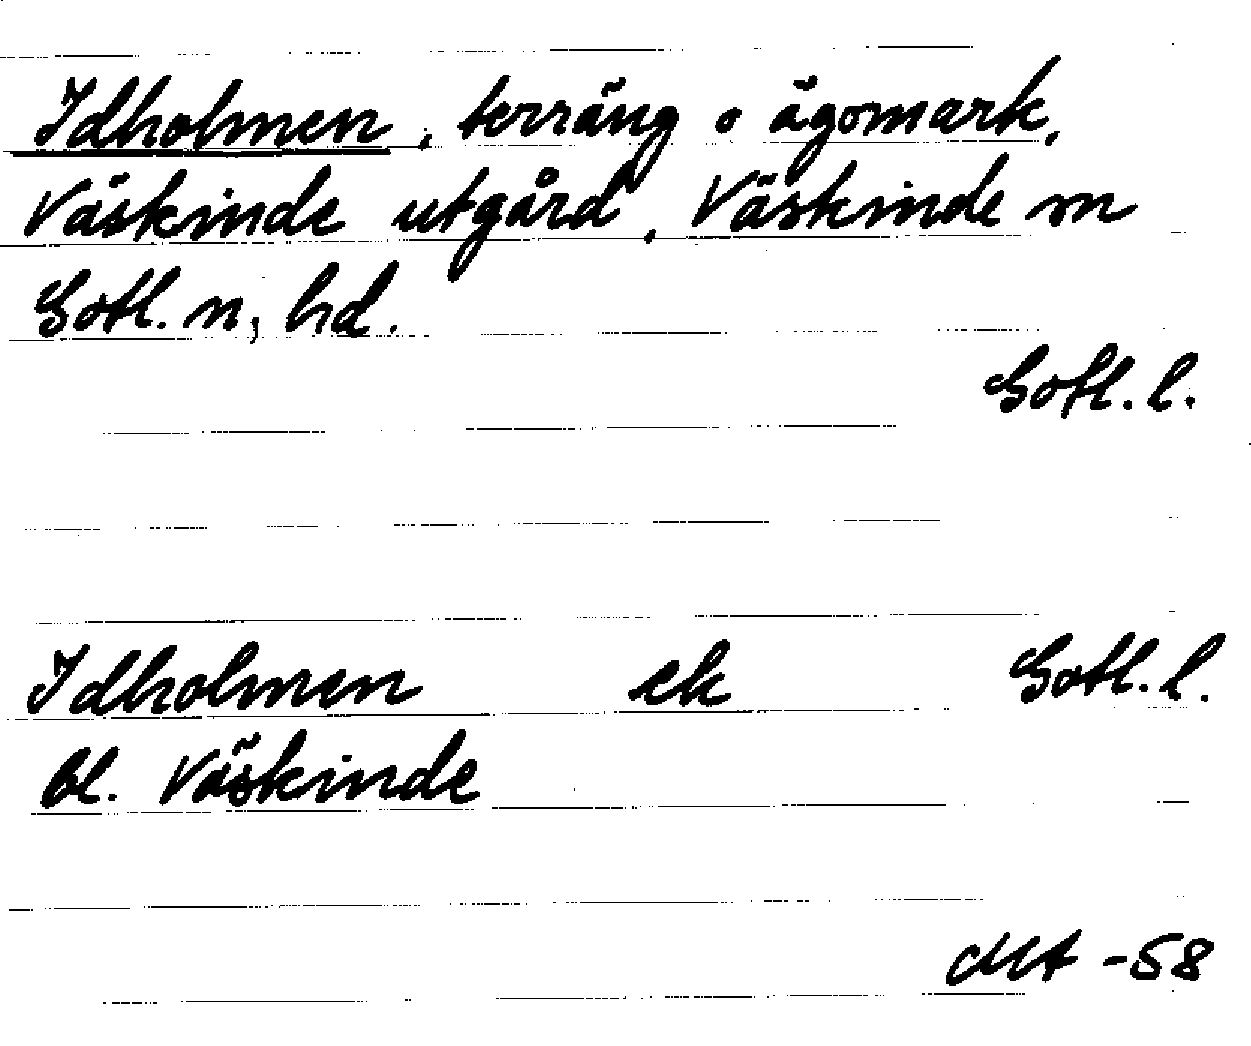 Idholmen, terräng o ägomark,
Väskinde utgård, Väskinde sn
Gotl. n, hd.
Gotl. l.
Idholmen ek Gotl. l.
bl. Väskinde
-58